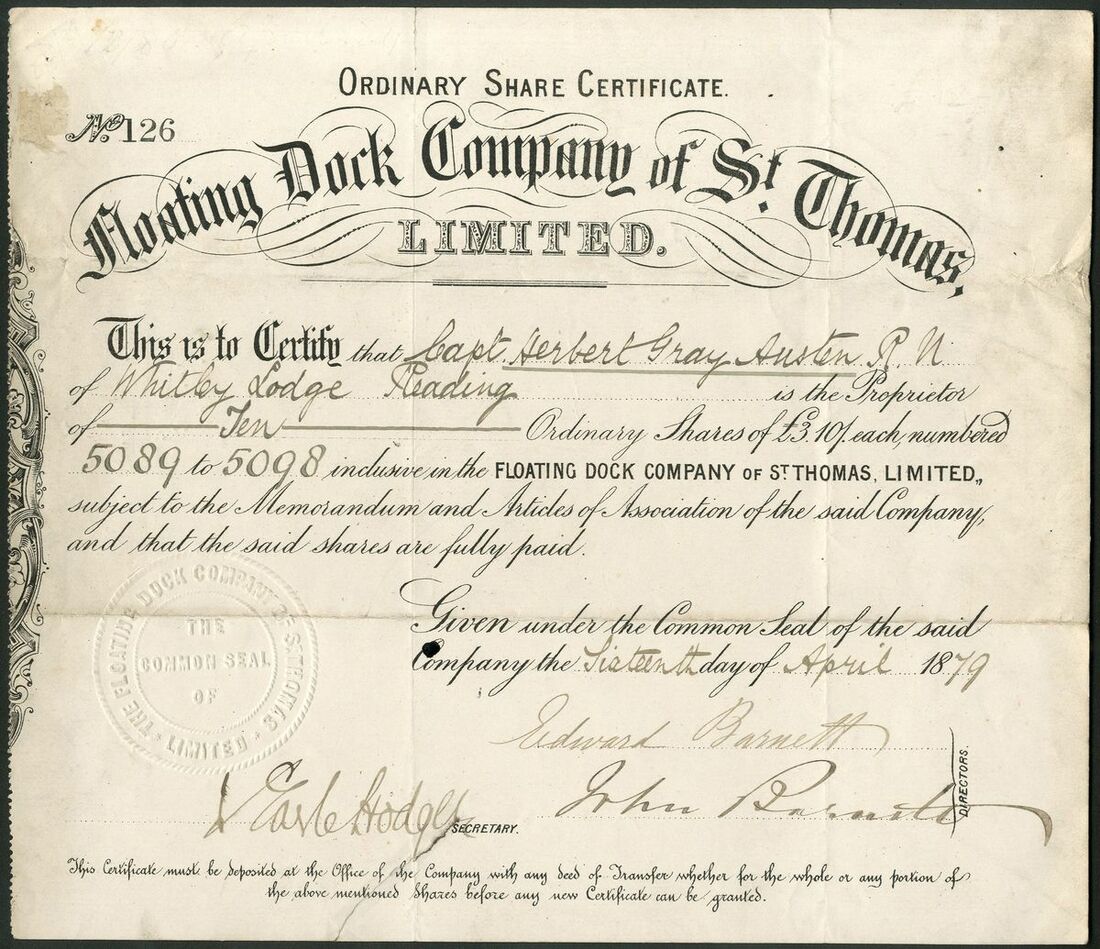 ORDINARY SHARE CERTIFICATE.
No. 126
Floating Dock Company of St. Thomas,
LIMITED.
This is to Certify that Capt. Herbert Gray Austen R N
of Whitley Lodge Reading is the Proprietor
of Ten Ordinary Shares of £3.10/. each, numbered
5089 to 5098 inclusive in the FLOATING DOCK COMPANY OF ST. THOMAS, LIMITED,,
subject to the Memorandum and Articles of Association of the said Company,
and that the said shares are fully paid.
Given under the Common Seal of the said
Company the Sixteenth day of April 1879
THE FLOATING DOCK COMPANY OF ST. THOMAS
LIMITED
THE
COMMON SEAL
OF
Edward Barnett
John Barnett
DIRECTORS.
Hodges
SECRETARY.
This Certificate must be deposited at the Office of the Company with any deed of Transfer whether for the whole or any portion of
the above mentioned Shares before any new Certificate can be granted.